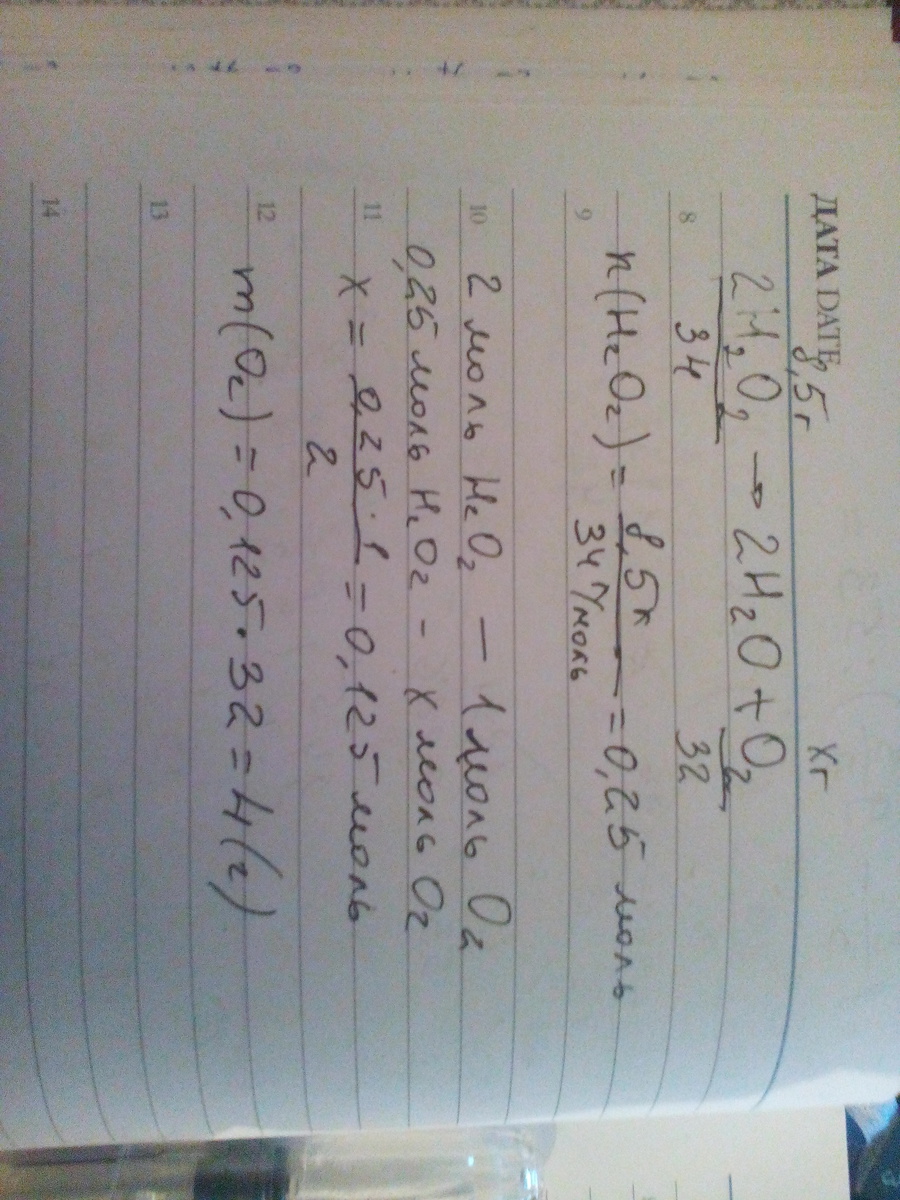 ДАТА DATE
8,5г хг
2H₂O₂ → 2H₂O + O₂
8 34 32
n(H₂O₂) = 8,5г / 34 г/моль = 0,25 моль
9
10 2 моль H₂O₂ — 1 моль O₂
0,25 моль H₂O₂ - x моль O₂
11 x = 0,25·1 / 2 = 0,125 моль
12 m(O₂) = 0,125·32 = 4(г)
13
14